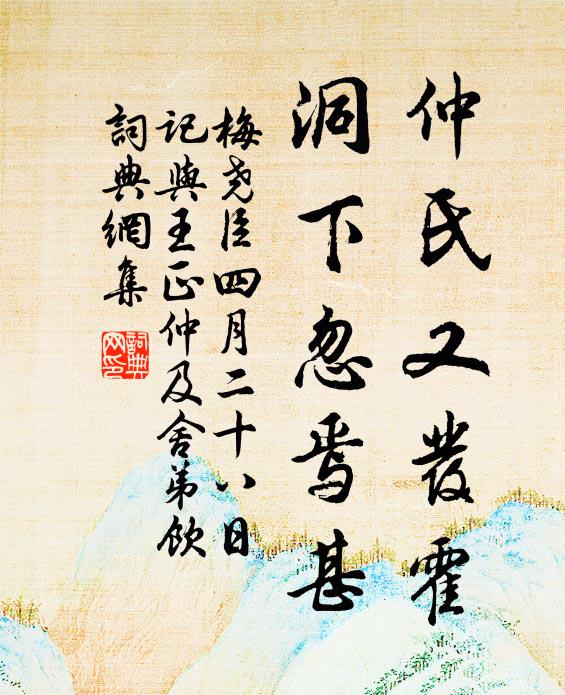 仲氏又發霍
洞下忽焉甚
梅尧臣四月二十八日
記與王正仲及舍弟飲
詞典網集
詞典網印